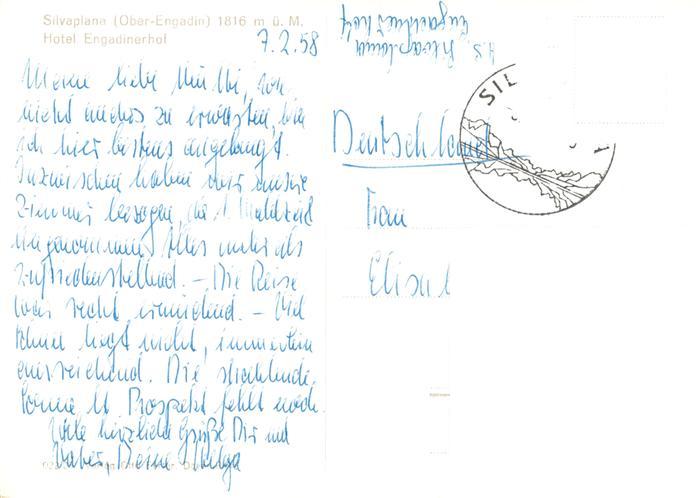 Silvaplana (Ober-Engadin) 1816 m ü. M.
Hotel Engadinerhof
7.2.58
Meine liebe Mutti, wie
nicht anders zu erwarten, bin
ich hier bestens angelangt.
Inzwischen haben wir unsre
Zimmer bezogen, die 1. Mahlzeit
eingenommen. Alles mehr als
zufriedenstellend. – Die Reise
war recht ermüdend. – Viel
Schnee liegt nicht, immerhin
ausreichend. Die strahlende
Sonne lt. Prospekt fehlt noch.
Viele herzliche Grüße Dir und
Vater, Deine Helga
Silvaplana
Engadinerhof
SIL
Deutschland
Frau
Elisa